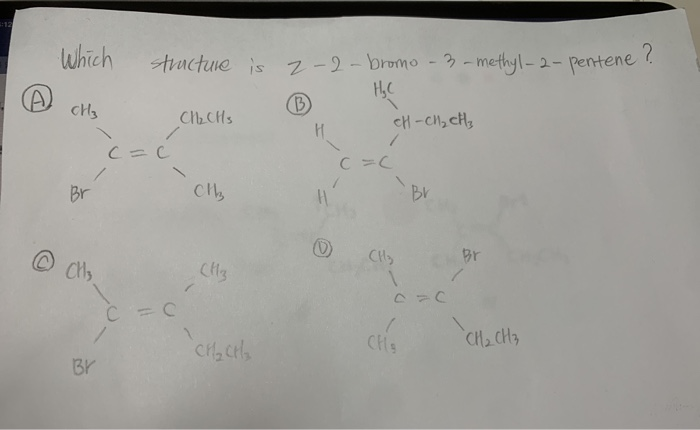 Which structure is Z-2-bromo-3-methyl-2-pentene?
A
CH3 CH2CH3
C=C
Br CH3
B
H3C
H CH-CH2CH3
C=C
H Br
C
CH3 CH3
C=C
Br CH2CH3
D
CH3 Br
C=C
CH3 CH2CH3